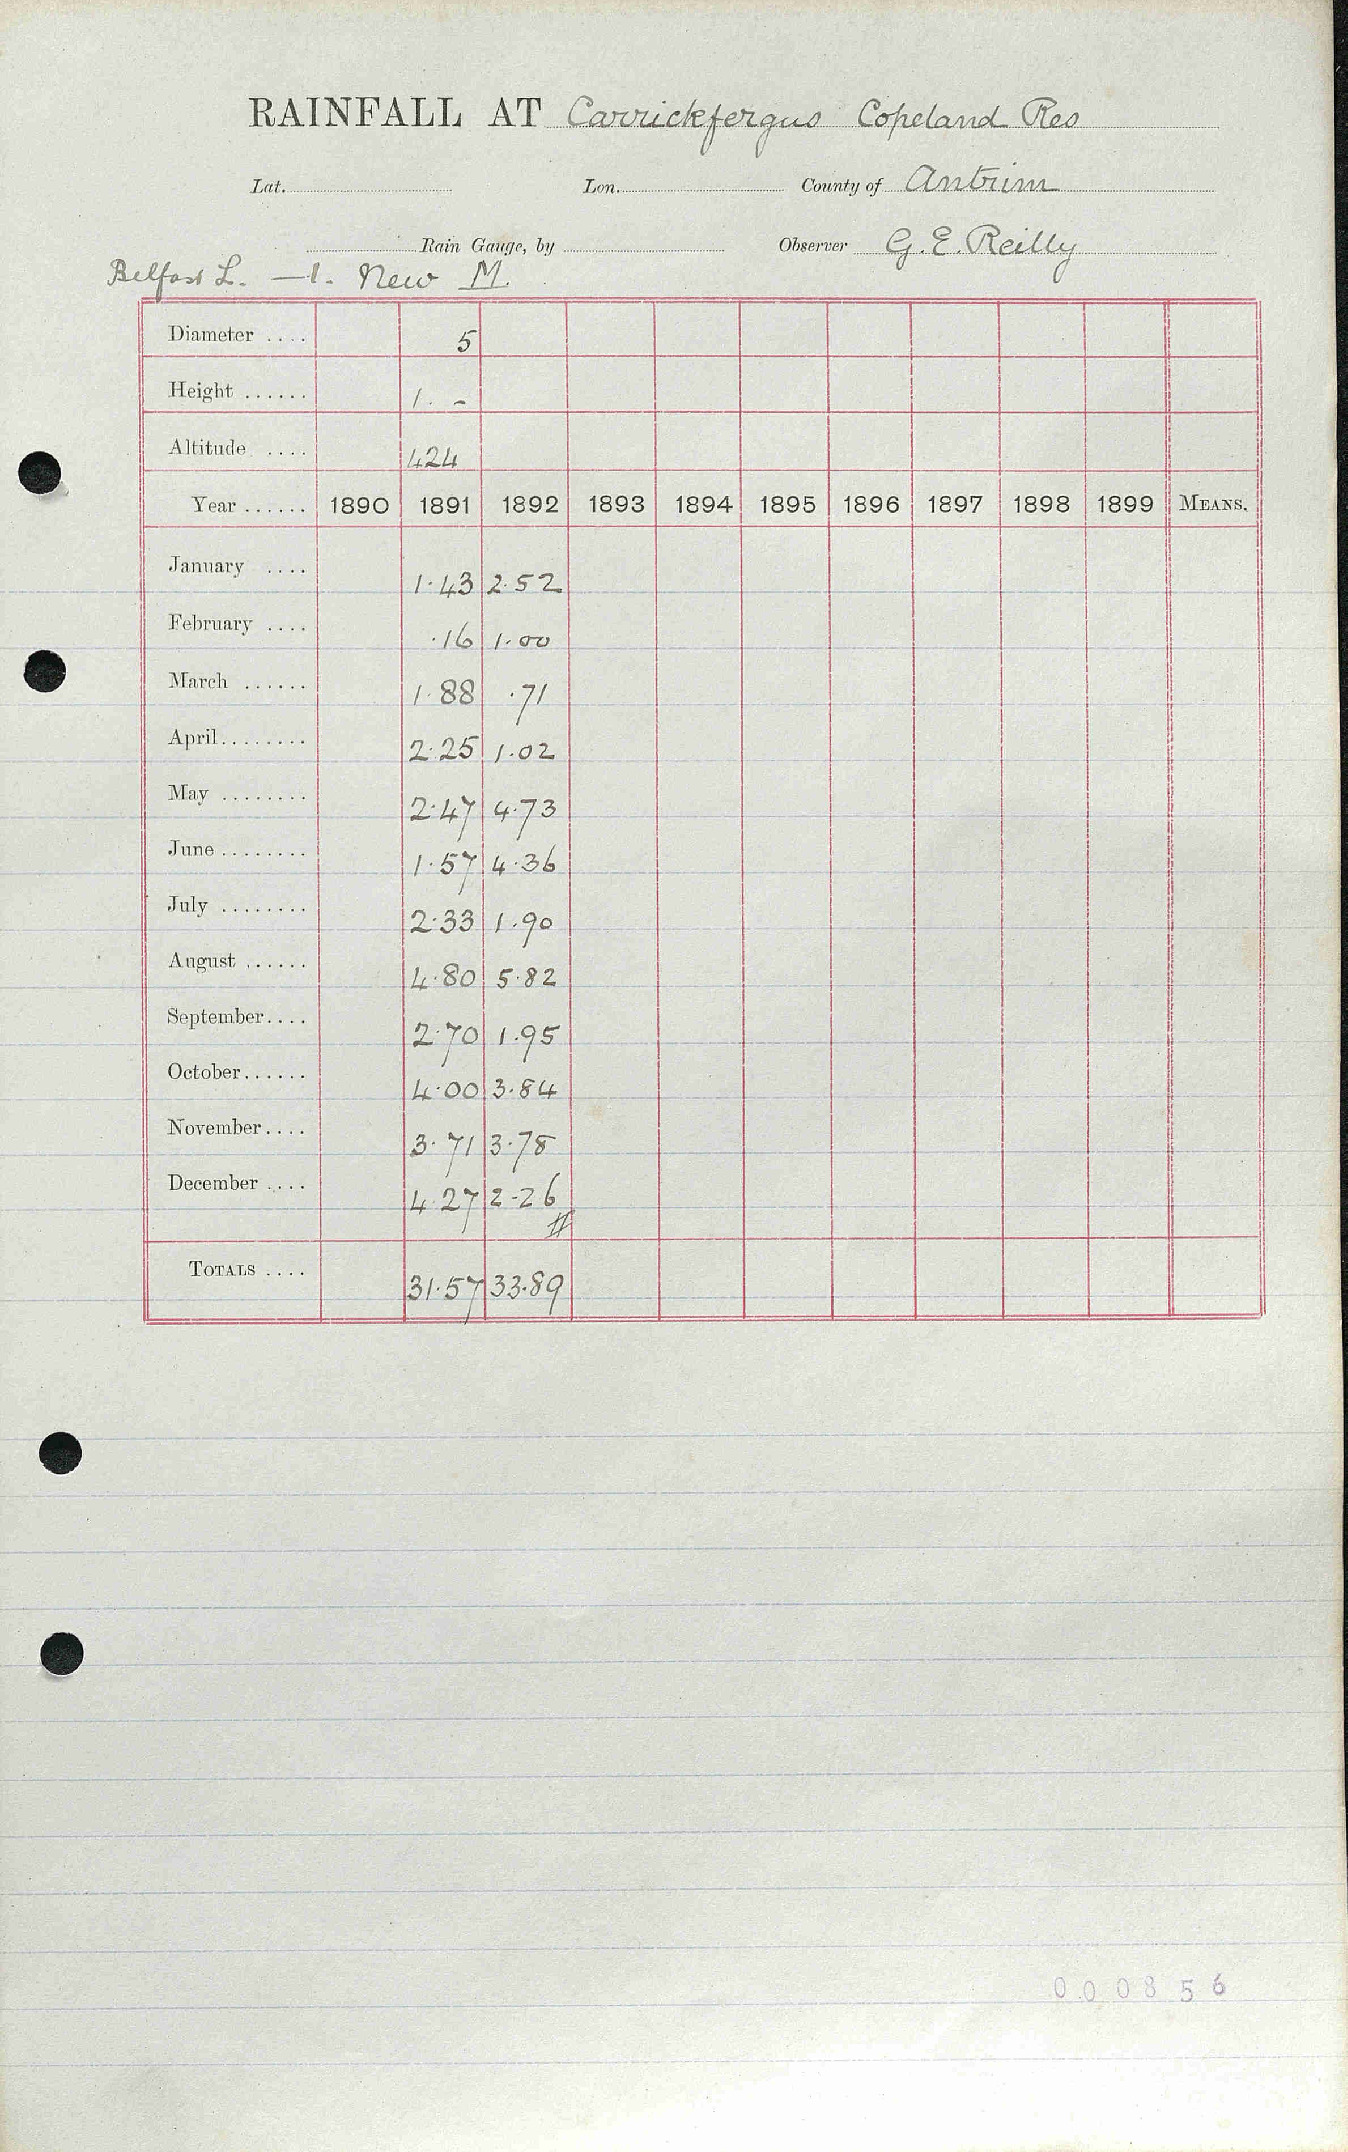 RAINFALL AT Carrickfergus Copeland Res
Lat. Lon. County of Antrim
Rain Gauge, by Observer G. E. Reilly
Belfast L. —1. New M.
Diameter .... 5
Height ...... 1. -
Altitude .... 424
Year ...... 1890 1891 1892 1893 1894 1895 1896 1897 1898 1899 MEANS.
January .... 1.43 2.52
February .... .16 1.00
March ...... 1.88 .71
April........ 2.25 1.02
May ........ 2.47 4.73
June ........ 1.57 4.36
July ........ 2.33 1.90
August ...... 4.80 5.82
September.... 2.70 1.95
October...... 4.00 3.84
November.... 3.71 3.78
December .... 4.27 2.26
#
TOTALS .... 31.57 33.89
000856